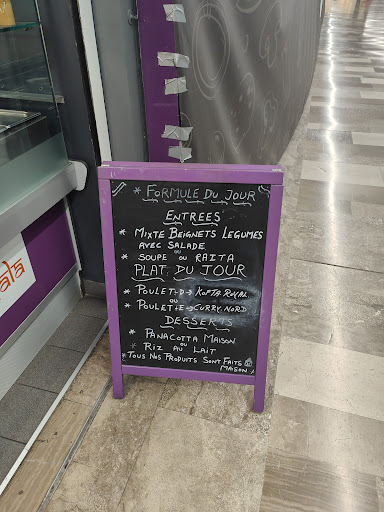 * FORMULE DU JOUR *
ENTREES
* MIXTE BEIGNETS LEGUMES
AVEC SALADE
OU
* SOUPE OU RAITA
PLAT DU JOUR
* POULET-D→ KOFTA ROYAL
OU
* POULET-E→ CURRY NORD
DESSERTS
* PANACOTTA MAISON
OU
* RIZ AU LAIT
* TOUS NOS PRODUITS SONT FAITS
MAISON